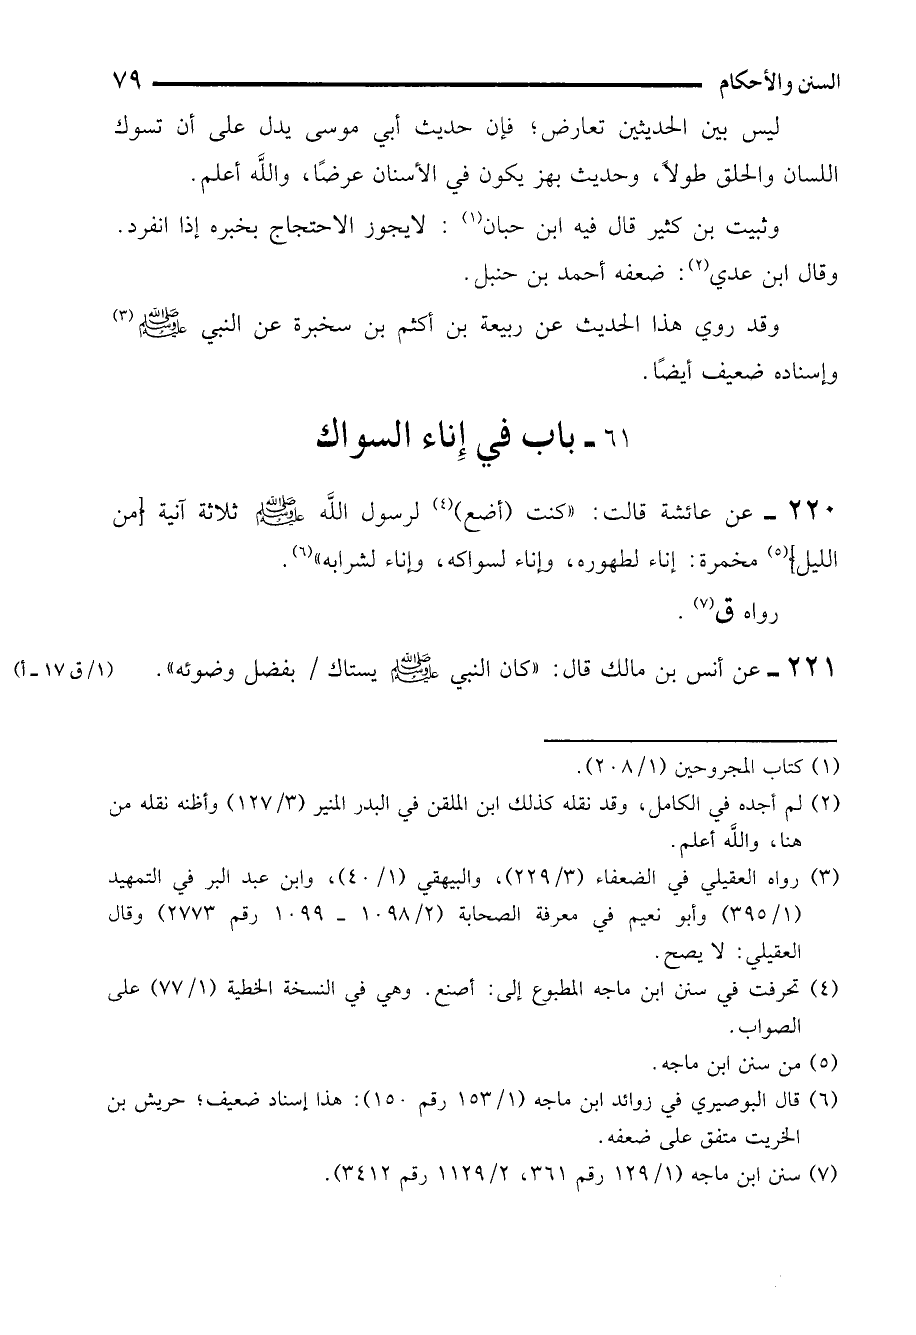 السنن والأحكام ٧٩
ليس بين الحديثين تعارض؛ فإن حديث أبي موسى يدل على أن تسوك
اللسان والحلق طولاً، وحديث بهز يكون في الأسنان عرضًا، واللَّه أعلم.
وثبيت بن كثير قال فيه ابن حبان(١) : لايجوز الاحتجاج بخبره إذا انفرد.
وقال ابن عدي(٢): ضعفه أحمد بن حنبل.
وقد روي هذا الحديث عن ربيعة بن أكثم بن سخبرة عن النبي ﷺ(٣)
وإسناده ضعيف أيضًا.
٦١ ـ باب في إِناء السواك
٢٢٠ ـ عن عائشة قالت: «كنت (أضع)(٤) لرسول اللَّه ﷺ ثلاثة آنية {من
الليل}(٥) مخمرة: إناء لطهوره، وإناء لسواكه، وإناء لشرابه»(٦).
رواه ق(٧) .
٢٢١ ـ عن أنس بن مالك قال: «كان النبي ﷺ يستاك / بفضل وضوئه». (١/ ق ١٧ ـ أ)
(١) كتاب المجروحين (١/ ٢٠٨).
(٢) لم أجده في الكامل، وقد نقله كذلك ابن الملقن في البدر المنير (٣/ ١٢٧) وأظنه نقله من
هنا، واللَّه أعلم.
(٣) رواه العقيلي في الضعفاء (٣/ ٢٢٩)، والبيهقي (١/ ٤٠)، وابن عبد البر في التمهيد
(١/ ٣٩٥) وأبو نعيم في معرفة الصحابة (٢/ ١٠٩٨ ـ ١٠٩٩ رقم ٢٧٧٣) وقال
العقيلي: لا يصح.
(٤) تحرفت في سنن ابن ماجه المطبوع إلى: أصنع. وهي في النسخة الخطية (١/ ٧٧) على
الصواب.
(٥) من سنن ابن ماجه.
(٦) قال البوصيري في زوائد ابن ماجه (١/ ١٥٣ رقم ١٥٠): هذا إسناد ضعيف؛ حريش بن
الخريت متفق على ضعفه.
(٧) سنن ابن ماجه (١/ ١٢٩ رقم ٣٦١، ٢/ ١١٢٩ رقم ٣٤١٢).